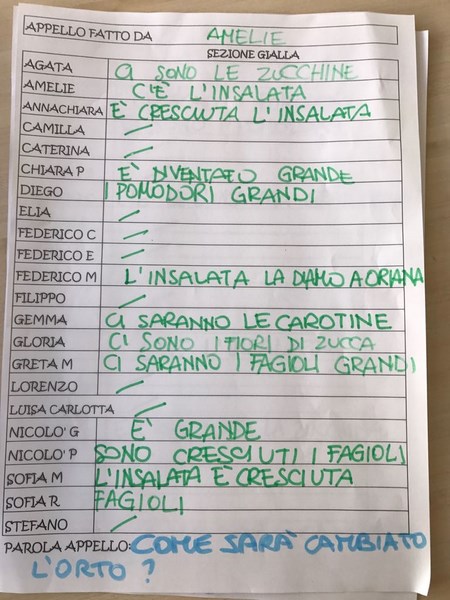 APPELLO FATTO DA AMELIE
SEZIONE GIALLA
AGATA CI SONO LE ZUCCHINE
AMELIE C'È L'INSALATA
ANNACHIARA È CRESCIUTA L'INSALATA
CAMILLA
CATERINA
CHIARA P È DIVENTATO GRANDE
DIEGO I POMODORI GRANDI
ELIA
FEDERICO C
FEDERICO E
FEDERICO M L'INSALATA LA DIAMO A ORIANA
FILIPPO
GEMMA CI SARANNO LE CAROTINE
GLORIA CI SONO I FIORI DI ZUCCA
GRETA M CI SARANNO I FAGIOLI GRANDI
LORENZO
LUISA CARLOTTA
NICOLO' G È GRANDE
NICOLO' P SONO CRESCIUTI I FAGIOLI
SOFIA M L'INSALATA È CRESCIUTA
SOFIA R FAGIOLI
STEFANO
PAROLA APPELLO: COME SARÀ CAMBIATO
L'ORTO ?